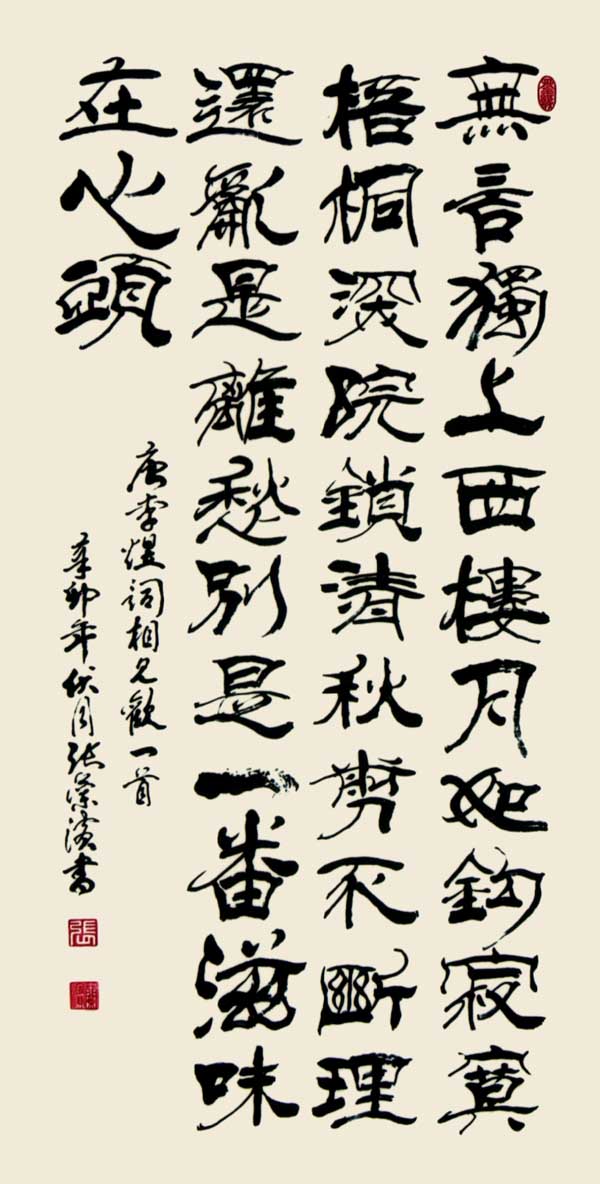 無言獨上西樓月如鈎寂寞
梧桐深院鎖清秋剪不斷理
還亂是離愁別是一番滋味
在心頭
唐李煜詞相見歡一首
辛卯年伏月張書
張